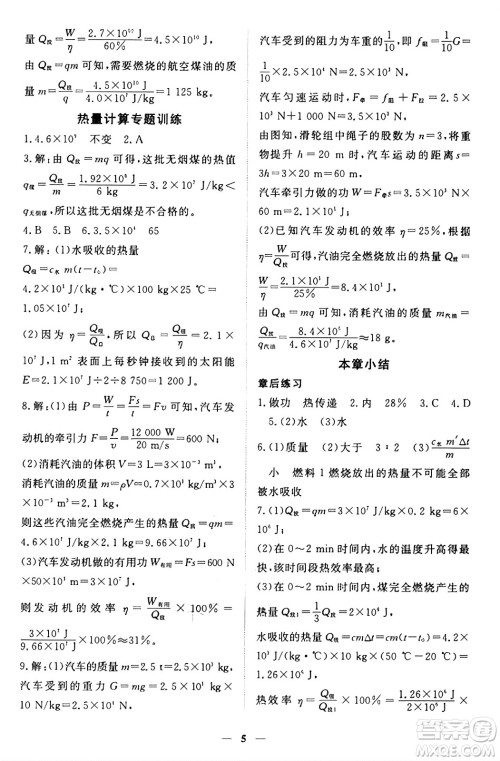 量 Q放=W/η=2.7×10¹⁰ J/60%=4.5×10¹⁰ J。
由 Q放=mq 可得，需要燃烧的航空煤油的质
量 m=Q放/q=4.5×10¹⁰ J/4.0×10⁷ J/kg=1 125 kg。
热量计算专题训练
不变 2.A
3.解：由 Q放=mq 可得，这批无烟煤的热值
q煤=Q放/m=1.92×10⁸ J/6 kg=3.2×10⁷ J/kg<
q无烟煤，所以这批煤不是无烟煤。
4.B 5.B 6.3.5×10⁴ B
7.解：(1)水吸收的热量
Q吸=c水m(t-t₀)=
4.2×10³ J/(kg·℃)×100 kg×25 ℃=
1.05×10⁷ J
(2)因为 η=Q吸/Q总，所以 Q总=Q吸/η=2.1×
10⁷ J，1 m² 太阳能每秒钟接收到的太阳能
E=2.1×10⁷ J/(5 m²×3 500 s)=1 200 J。
8.解：(1)由 P=W/t=Fs/t=Fv 可知，汽车发
动机的牵引力 F=P/v=12 000 W/20 m/s=600 N
(2)消耗汽油的体积 V=300 mL=300 cm³，
消耗汽油的质量 m=ρV=210 g=0.21 kg，
则这些汽油完全燃烧产生的热量 Q放=qm=
9.66×10⁶ J
(3)汽车发动机的有用功 W有用=Fs=600 N
×5×10³ m=3×10⁶ J，
则发动机的效率 η=W有用/Q放×100%=
3×10⁶ J/9.66×10⁶ J×100%≈31%。
9.解：(1)汽车的质量 m=2.5 t=2.5×10³ kg
汽车受到的重力 G=mg=2.5×10⁴ N，
汽车受到的阻力为车重的1/10，则 f阻=1/10G=
1/10×2.5×10⁴ N=2.5×10³ N，
汽车匀速运动时，汽车受到的牵引力 F牵=
f阻=2.5×10³ N，
由图知，滑轮组中绳子的股数为3股，当重物提升
h=20 m 时，汽车运动的距离 s=
3h=3×20 m=60 m，
汽车牵引力做的功 W=F牵s=2.5×10³ N
×60 m=1.5×10⁵ J
(2)已知汽车发动机的效率 η=25%，由
η=W/Q放可得，汽油完全燃烧放出的热量 Q放=
W/η=2.1×10⁵ J/25%=8.4×10⁵ J，消耗汽油的质量
m汽油=Q放/q汽油=8.4×10⁵ J/4.6×10⁷ J/kg≈18 g。
本章小结
章后练习
1.做功 热传递 2.内 28% 3.C 4.D
5.(2)水 (3)水
6.(1)质量 (2)大于 3∶2 (3)c水m′Δt/m
小 燃料 1 燃烧放出的热量不可能全部
被水吸收
7.(1)Q放=qm=1.2×10⁷ J
(2)在 0～2 min 时间内，水的温度升高最
快，该段时间内，煤完全燃烧产生的热量最多
(3)在 0～2 min 时间内，煤完全燃烧产生的
热量 Q放1=1/3Q放=1/3×1.2×10⁷ J=4×10⁶ J
水吸收的热量 Q吸=cmΔt=cm(t-t₀)=
1.26×10⁶ J
热效率 η=Q吸/Q放1×100%=1.26×10⁶ J/4×10⁶ J×
5